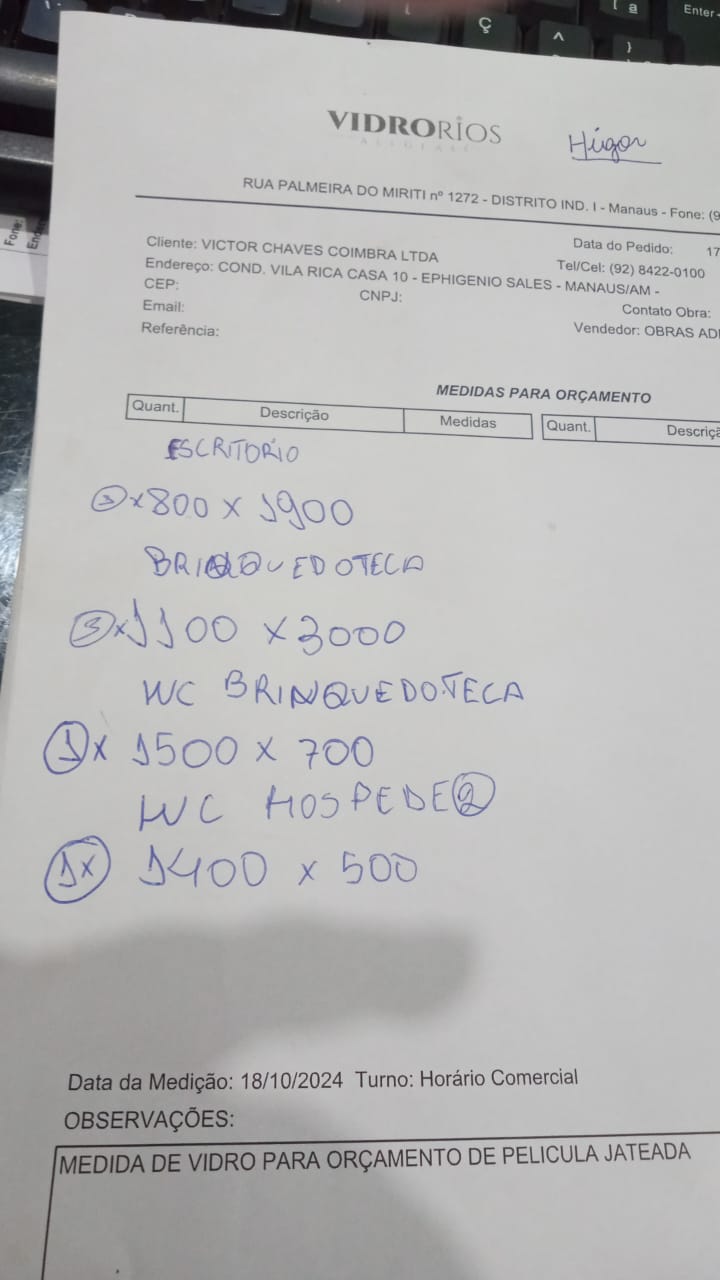 VIDRORIOS
Húgor
RUA PALMEIRA DO MIRITI nº 1272 - DISTRITO IND. I - Manaus - Fone: (9
Cliente: VICTOR CHAVES COIMBRA LTDA
Data do Pedido: 17
Endereço: COND. VILA RICA CASA 10 - EPHIGENIO SALES - MANAUS/AM -
Tel/Cel: (92) 8422-0100
CEP: CNPJ:
Contato Obra:
Email:
Vendedor: OBRAS ADI
Referência:
MEDIDAS PARA ORÇAMENTO
Quant. Descrição Medidas Quant. Descriçã
ESCRITORIO
x 800 x 1900
BRINQUEDOTECA
3 x 1100 x 3000
WC BRINQUEDOTECA
1 x 1500 x 700
WC HOSPEDE 2
1x 1400 x 500
Data da Medição: 18/10/2024 Turno: Horário Comercial
OBSERVAÇÕES:
MEDIDA DE VIDRO PARA ORÇAMENTO DE PELICULA JATEADA
Ç
^
}
[ ª
Enter
Fone: